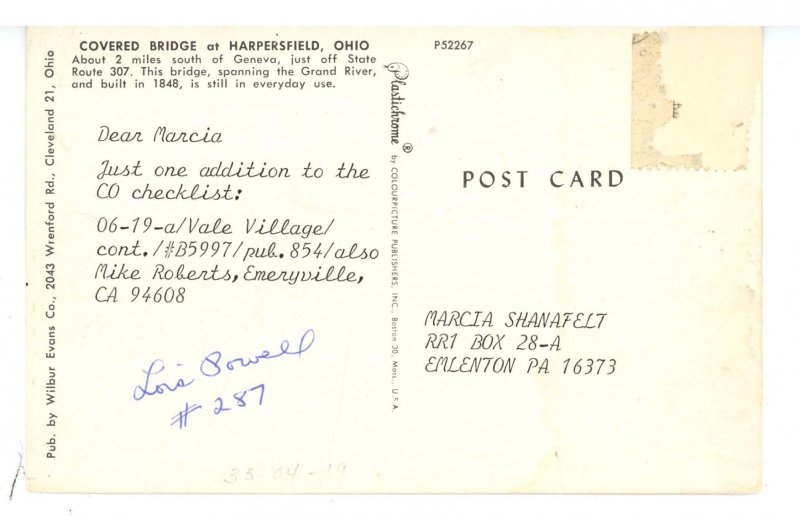 COVERED BRIDGE at HARPERSFIELD, OHIO
About 2 miles south of Geneva, just off State
Route 307. This bridge, spanning the Grand River,
and built in 1848, is still in everyday use.
P52267
Pub. by Wilbur Evans Co., 2043 Wrenford Rd., Cleveland 21, Ohio
Plastichrome ® by COLOURPICTURE PUBLISHERS, INC., Boston 30, Mass., U.S.A.
POST CARD
Dear Marcia
Just one addition to the
CO checklist:
06-19-a/Vale Village/
cont./#B5997/pub. 854/also
Mike Roberts, Emeryville,
CA 94608
Lois Powell
# 287
MARCIA SHANAFELT
RR1 BOX 28-A
EMLENTON PA 16373
35-04-19